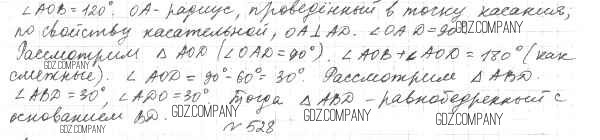 ∠AOB=120°. OA- радиус, проведённый в точку касания,
по свойству касательной, OA⊥AD. ∠OAD=90°
GDZ.COMPANY
Рассмотрим △AOD (∠OAD=90°). ∠AOB+∠AOD=180° (как
GDZ.COMPANY
смежные). ∠AOD=90°-60°=30°. Рассмотрим △ABD.
∠ABD=30°, ∠ADO=30°. Тогда △ABD - равнобедренный с
GDZ.COMPANY
основанием BD. GDZ.COMPANY GDZ.COMPANY
№528
GDZ.COMPANY